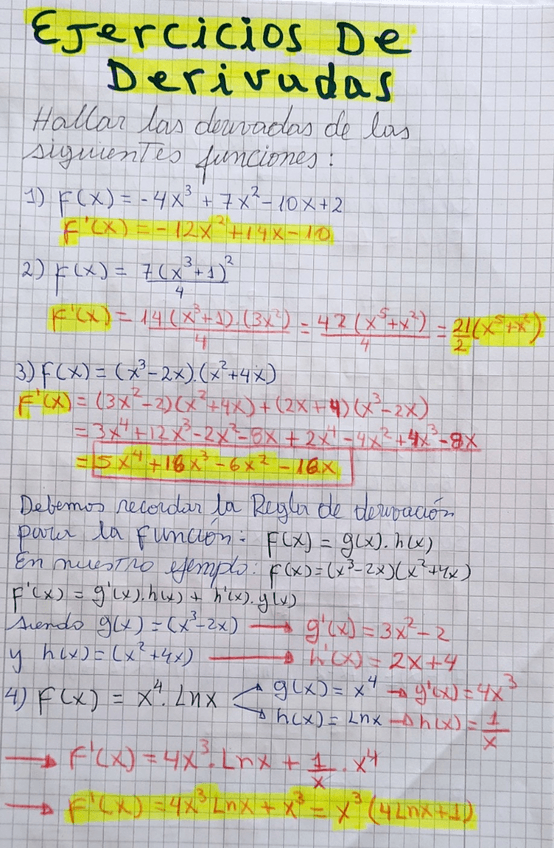 Ejercicios De
Derivadas
Hallar las derivadas de las
siguientes funciones:
1) F(x) = -4x³ + 7x² - 10x + 2
F'(x) = -12x² + 14x - 10
2) F(x) = 7(x³+1)²/4
F'(x) = 14(x³+1).(3x²)/4 = 42(x⁵+x²)/4 = 21/2(x⁵+x²)
3) F(x) = (x³-2x).(x²+4x)
F'(x) = (3x²-2)(x²+4x)+(2x+4)(x³-2x)
= 3x⁴+12x³-2x²-8x + 2x⁴-4x²+4x³-8x
= 5x⁴+16x³-6x²-16x
Debemos recordar la Regla de derivación
para la función: F(x) = g(x).h(x)
En nuestro ejemplo: F(x)=(x³-2x)(x²+4x)
F'(x) = g'(x).h(x) + h'(x).g(x)
siendo g(x) = (x³-2x) → g'(x) = 3x²-2
y h(x) = (x²+4x) → h'(x) = 2x+4
4) F(x) = x⁴.Lnx g(x) = x⁴ → g'(x) = 4x³
h(x) = Lnx → h(x) = 1/x
→ F'(x) = 4x³.Lnx + 1/x . x⁴
→ F'(x) = 4x³Lnx + x³ = x³(4Lnx+1)